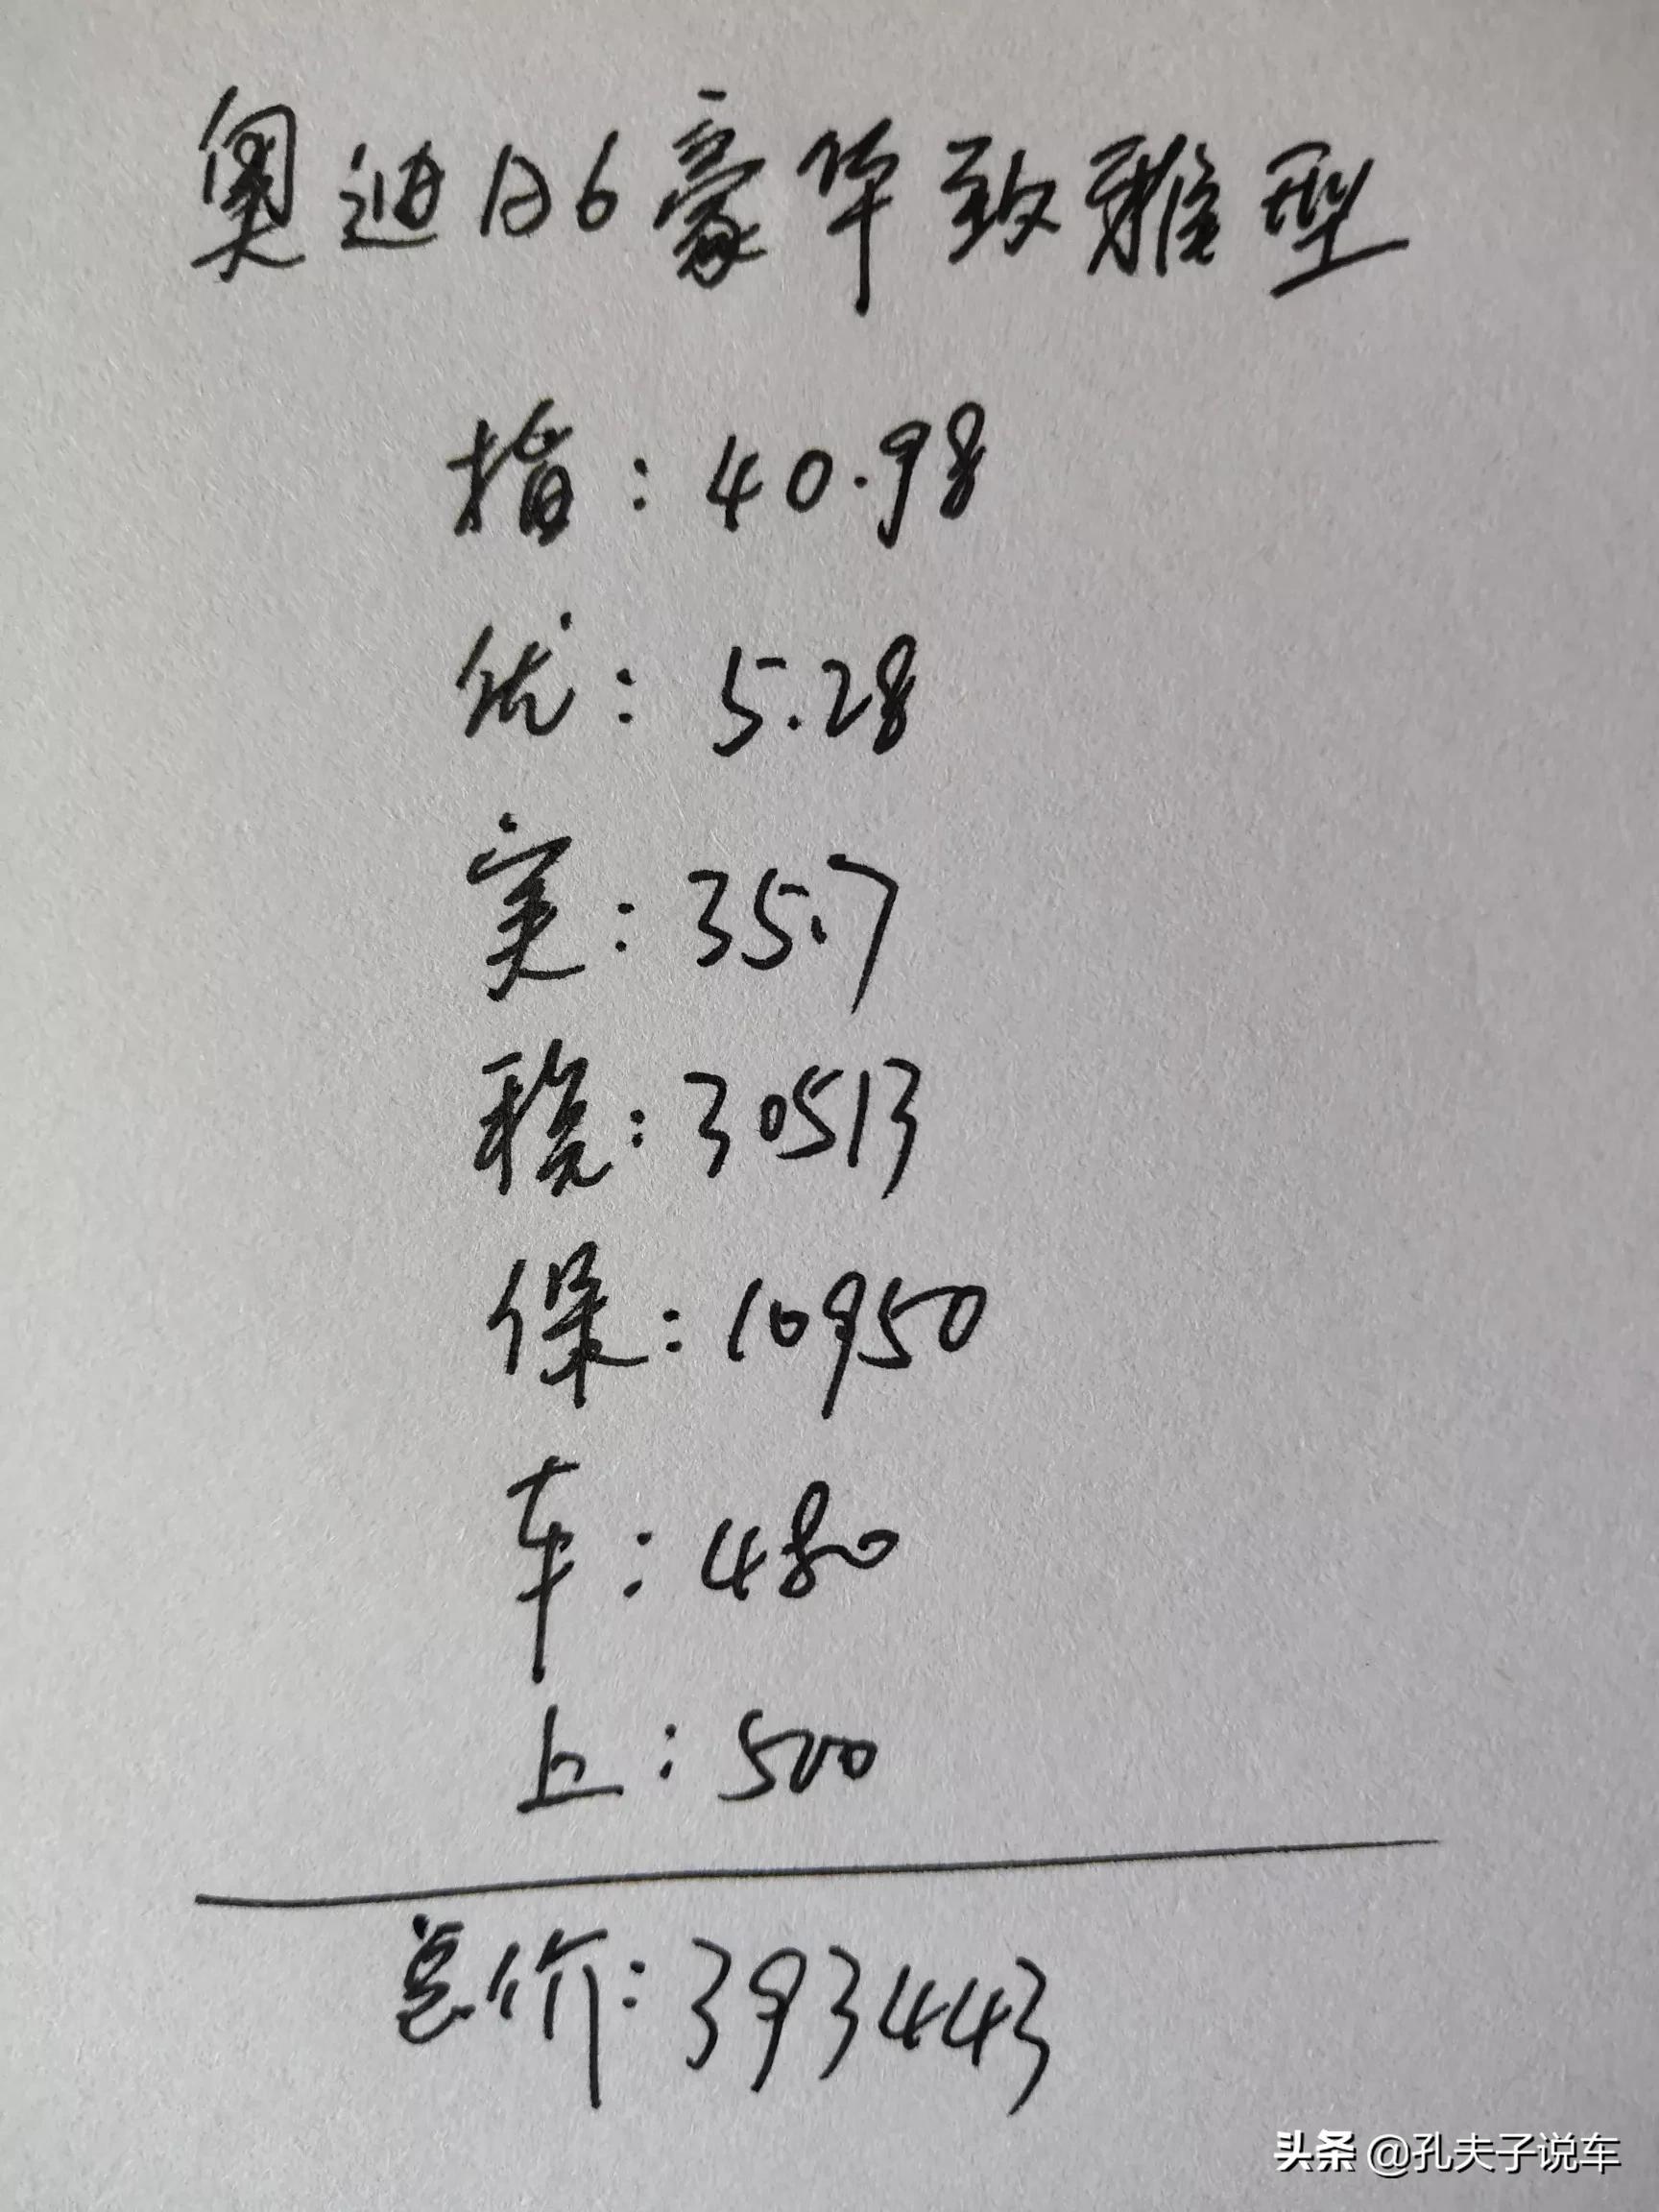 奥迪A6豪华致雅型
指：40.98
优：5.28
实：35.7
税：30513
保：10950
车：480
上：500
总价：393443
头条 @孔夫子说车